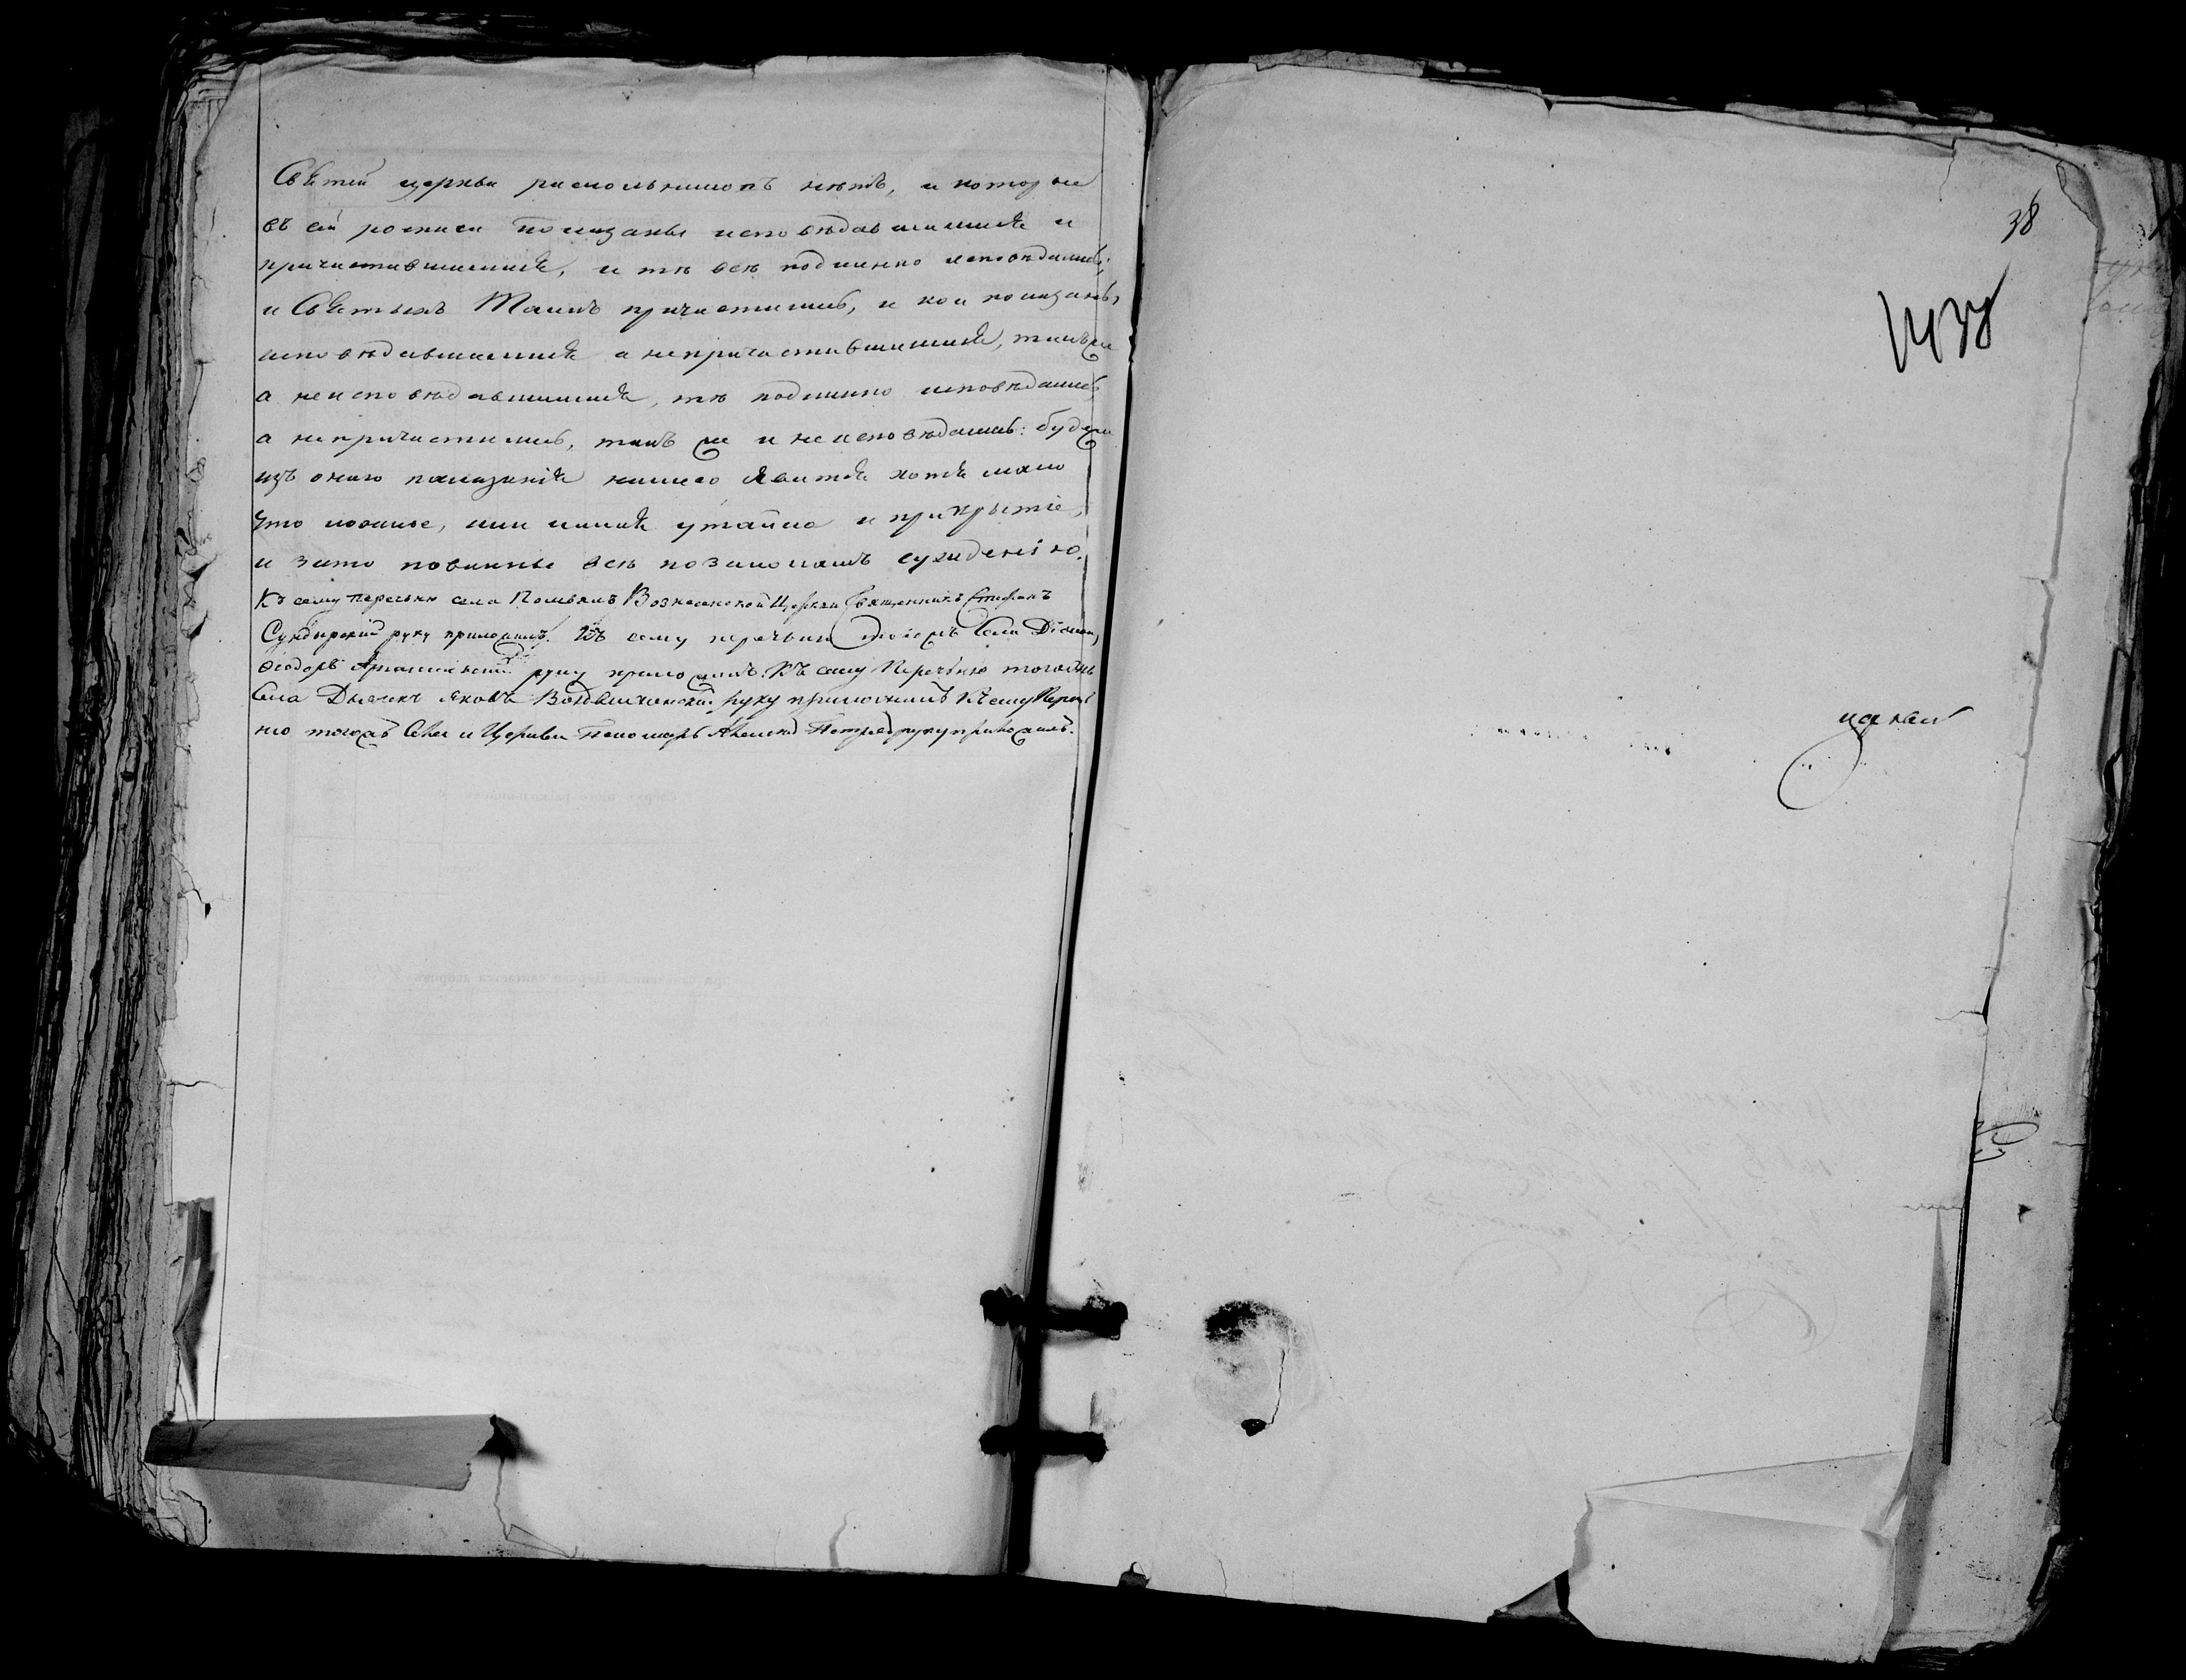 Святей церкви раскольниковъ нѣтъ, и которые
въ сей росписи показаны исповѣдавшимися и
причастившимися, и тѣ всѣ подлинно исповѣдались,
и Святыхъ Таинъ причастились, и кои показаны,
исповѣдавшимися а непричастившимися, также
а неисповѣдавшимися, тѣ подлинно исповѣдались,
а непричастились, такъ же и неисповѣдались: будеже
изъ онаго показанія нашего явится хотя мало
что ложное, или какая утайка и прикрытіе,
и зато повинны всѣ позаконамъ сужденію.
Къ сему перечню села Вознесенской Церкви Священникъ Стефанъ
Сундырскій руку приложилъ. Къ сему перечню тогожъ села Діаконъ
Ѳеодоръ руку приложилъ. Къ сему Перечню тогожъ
села Дьячекъ Яковъ Воздвиженскій руку приложилъ Къ сему Переч
ню тогожъ Села и Церкви Пономарь Алексей Петровъ руку приложилъ.
38